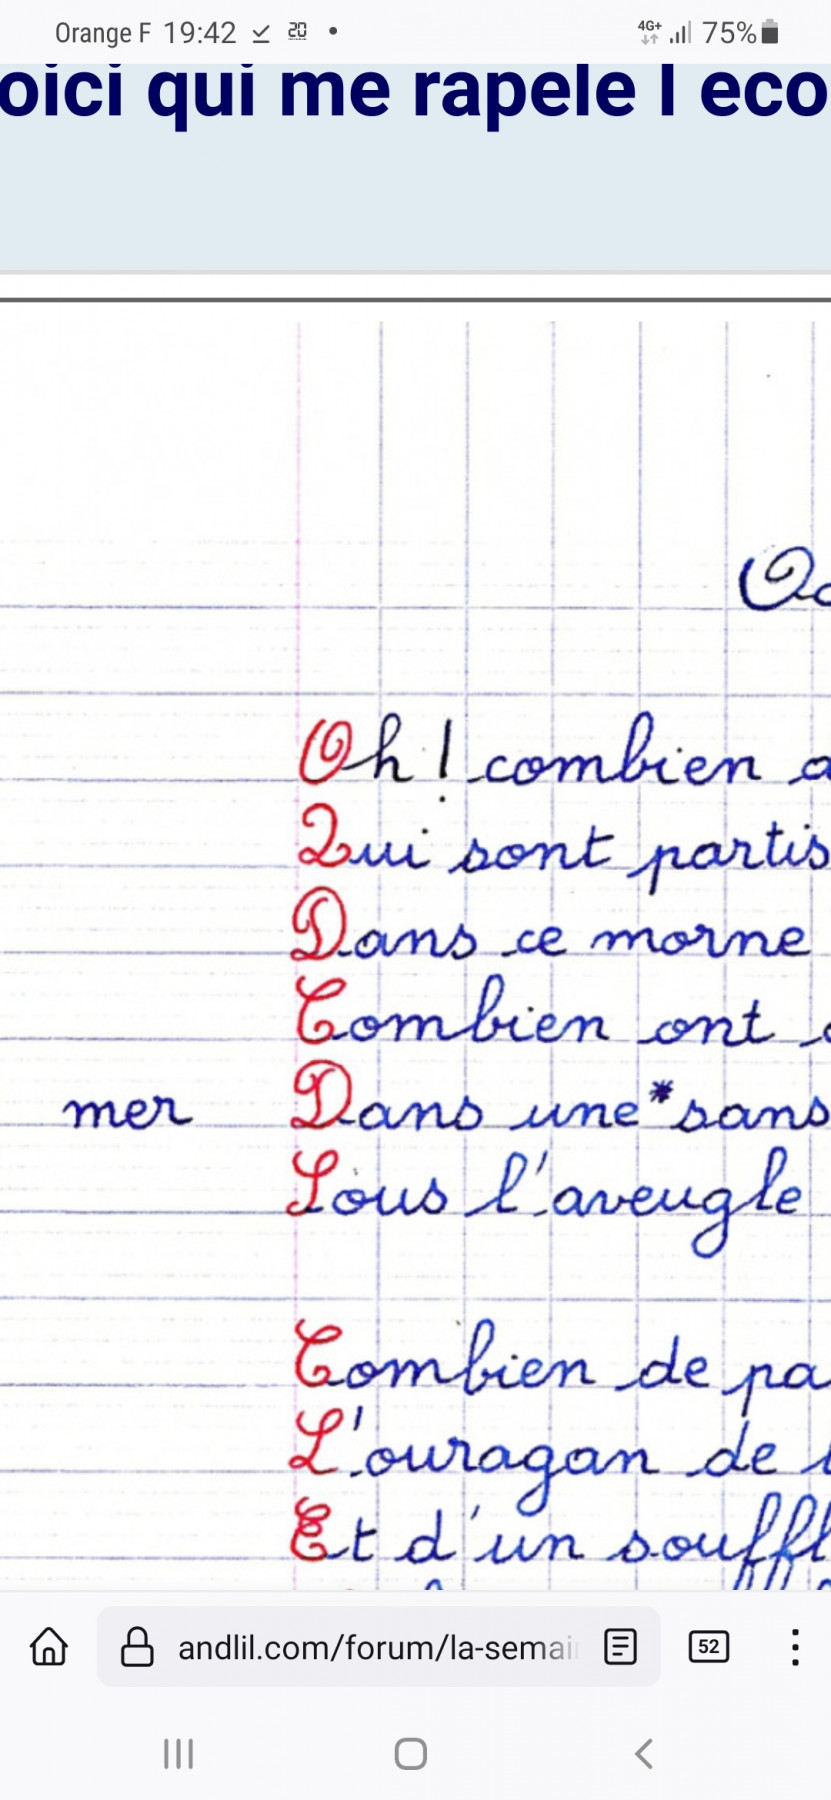 Orange F 19:42 20
4G+ 75%
oici qui me rapele l eco
Oc
Oh ! combien
Qui sont partis
Dans ce morne
Combien ont
mer Dans une * sans
Sous l'aveugle
Combien de pa
L'ouragan de
Et d'un souffl
andlil.com/forum/la-semai
52